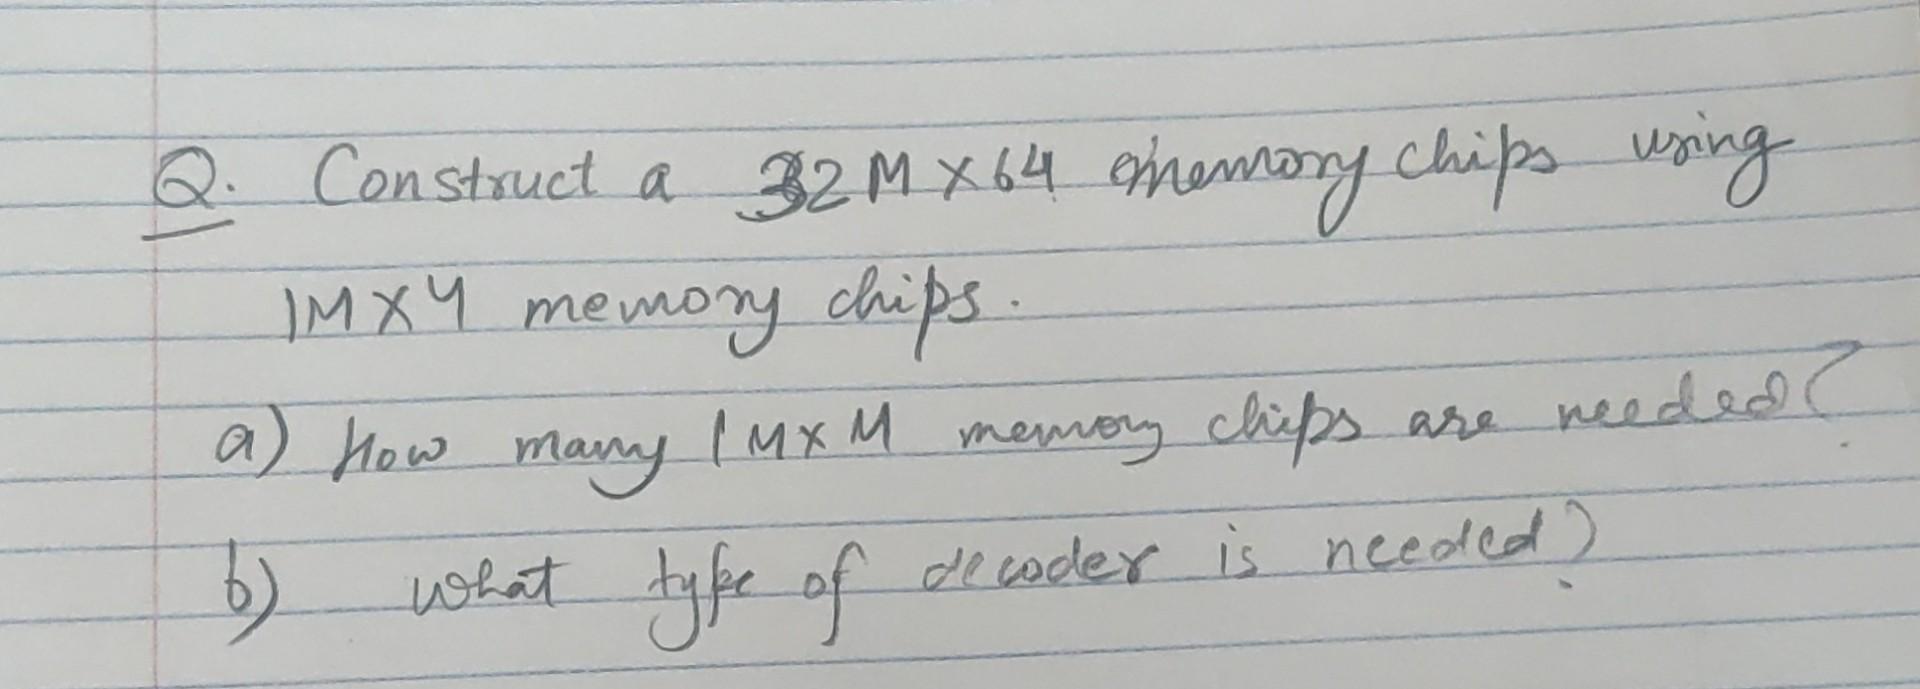 Q. Construct a 32M X 64 memory chips using
1M X 4 memory chips.
a) How many 1 M X M memory chips are needed?
b) what type of decoder is needed?